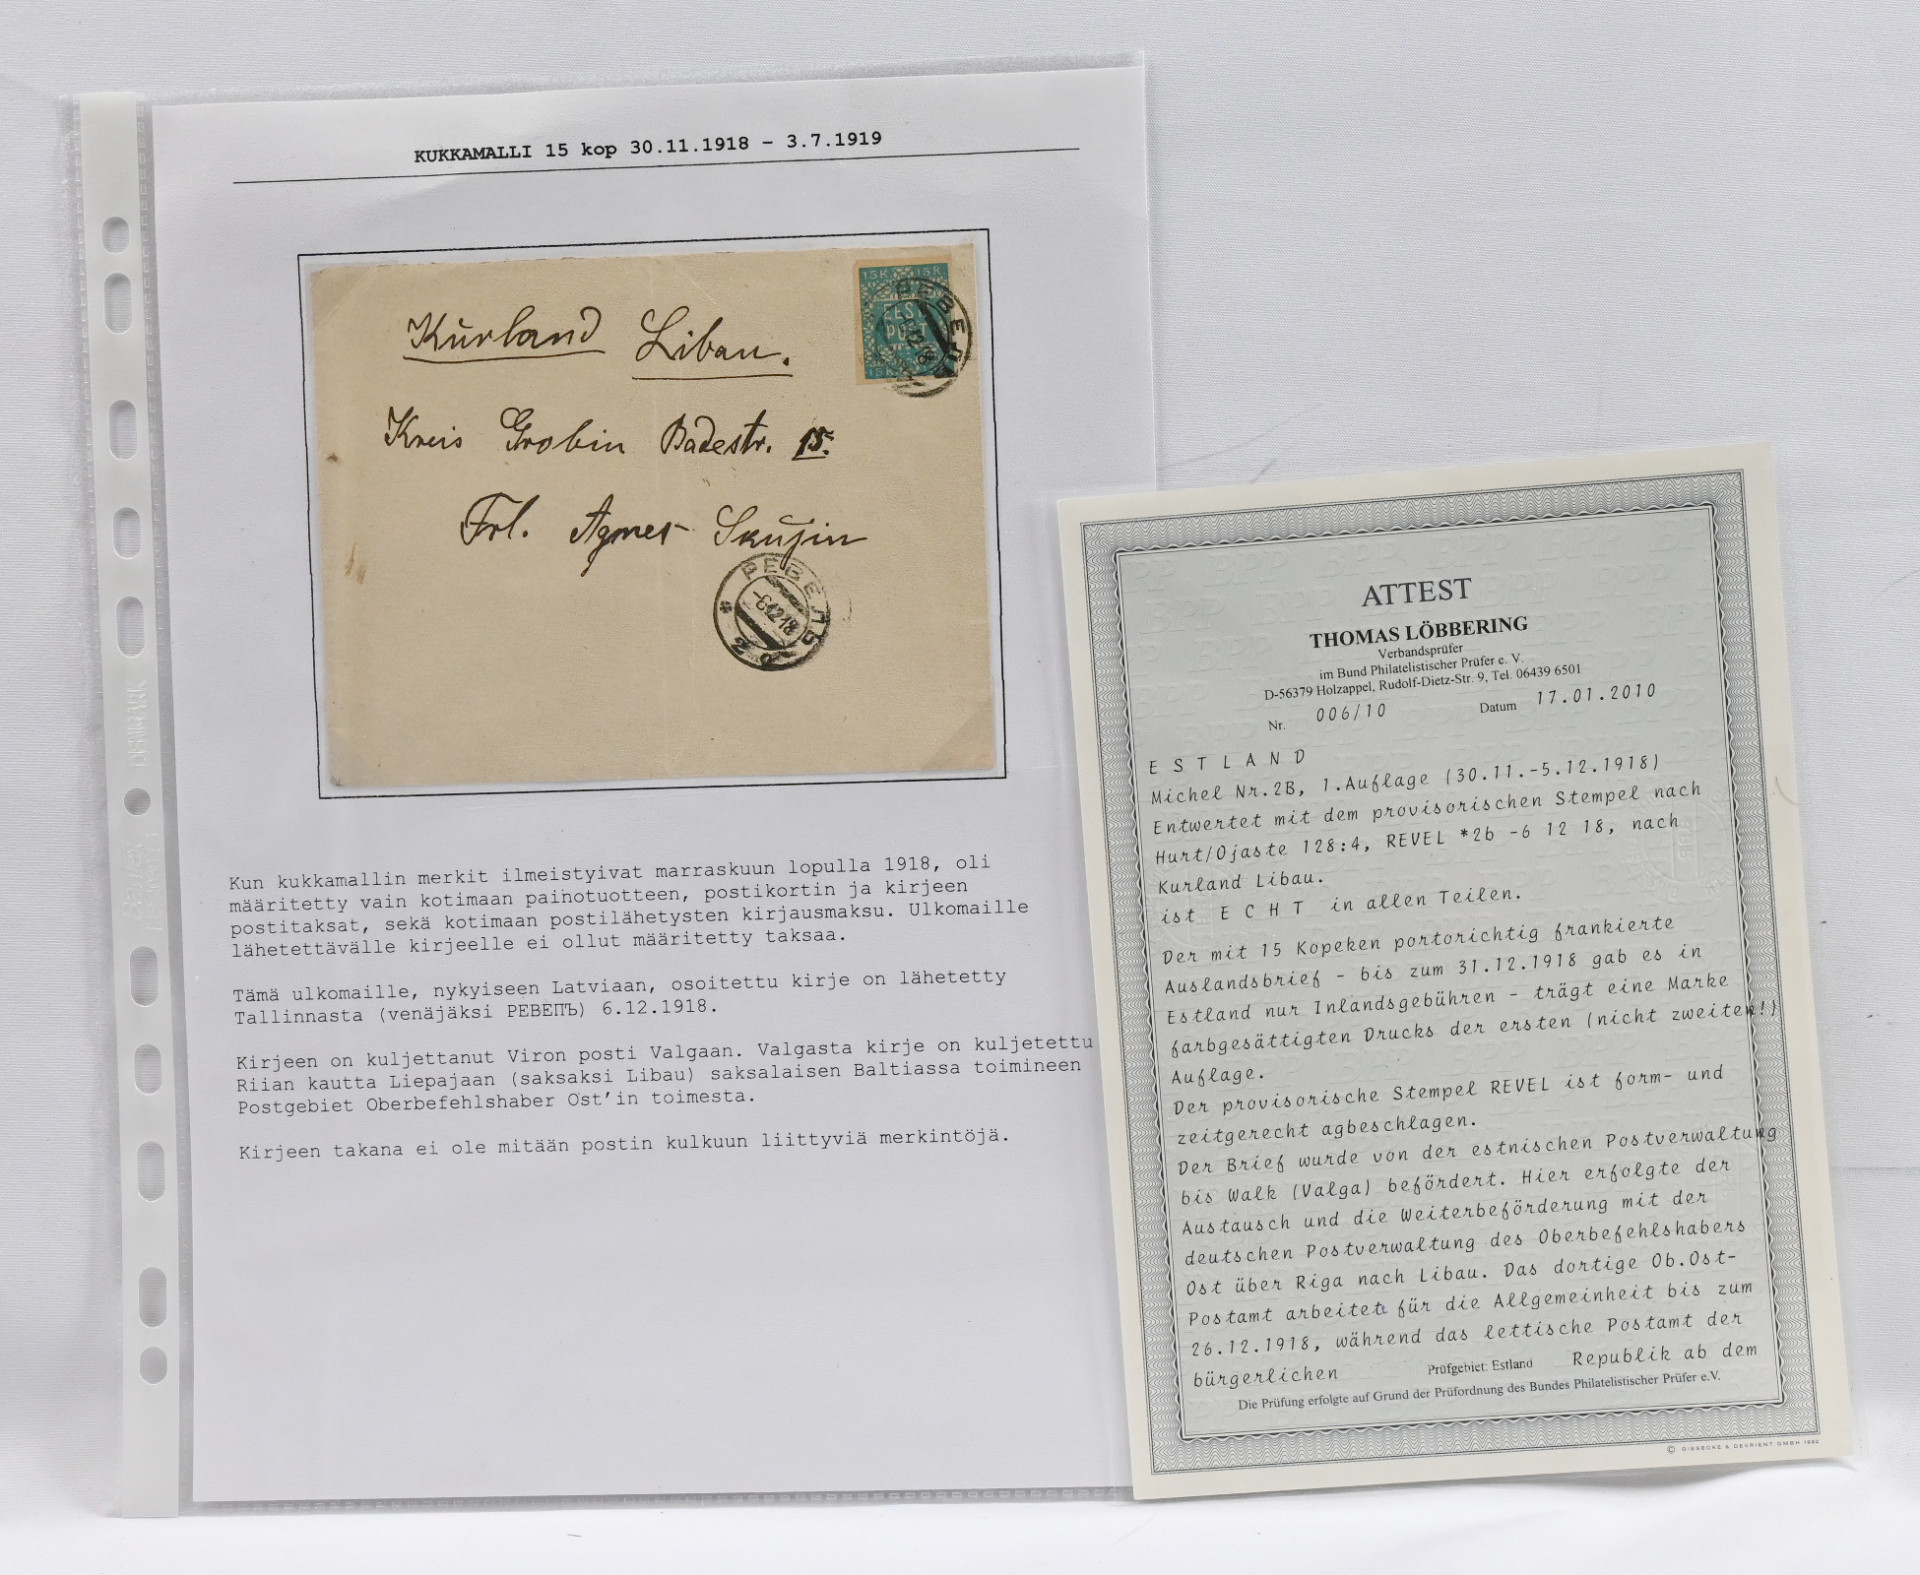 KUKKAMALLI 15 kop 30.11.1918 – 3.7.1919
15 K. 15 K.
EESTI
POST
15 K.
РЕВЕЛЬ
Kurland Libau.
Kreis Grobin Badestr. 15.
Frl. Agnes Skujin
РЕВЕЛЬ
-6 12 18
Kun kukkamallin merkit ilmestyivat marraskuun lopulla 1918, oli
määritetty vain kotimaan painotuotteen, postikortin ja kirjeen
postitaksat, sekä kotimaan postilähetysten kirjausmaksu. Ulkomaille
lähetettävälle kirjeelle ei ollut määritetty taksaa.
Tämä ulkomaille, nykyiseen Latviaan, osoitettu kirje on lähetetty
Tallinnasta (venäjäksi РЕВЕПЪ) 6.12.1918.
Kirjeen on kuljettanut Viron posti Valgaan. Valgasta kirje on kuljetettu
Riian kautta Liepajaan (saksaksi Libau) saksalaisen Baltiassa toimineen
Postgebiet Oberbefehlshaber Ost'in toimesta.
Kirjeen takana ei ole mitään postin kulkuun liittyviä merkintöjä.
DENMARK
ATTEST
THOMAS LÖBBERING
Verbandsprüfer
im Bund Philatelistischer Prüfer e. V.
D-56379 Holzappel, Rudolf-Dietz-Str. 9, Tel. 06439 6501
Nr. 006/10 Datum 17.01.2010
E S T L A N D
Michel Nr.2B, 1.Auflage (30.11.-5.12.1918)
Entwertet mit dem provisorischen Stempel nach
Hurt/Ojaste 128:4, REVEL *2b -6 12 18, nach
Kurland Libau.
ist E C H T in allen Teilen.
Der mit 15 Kopeken portorichtig frankierte
Auslandsbrief - bis zum 31.12.1918 gab es in
Estland nur Inlandsgebühren - trägt eine Marke
farbgesättigten Drucks der ersten (nicht zweiten!)
Auflage.
Der provisorische Stempel REVEL ist form- und
zeitgerecht agbeschlagen.
Der Brief wurde von der estnischen Postverwaltung
bis Walk (Valga) befördert. Hier erfolgte der
Austausch und die Weiterbeförderung mit der
deutschen Postverwaltung des Oberbefehlshabers
Ost über Riga nach Libau. Das dortige Ob.Ost-
Postamt arbeitet für die Allgemeinheit bis zum
26.12.1918, während das lettische Postamt der
bürgerlichen Prüfgebiet: Estland Republik ab dem
Die Prüfung erfolgte auf Grund der Prüfordnung des Bundes Philatelistischer Prüfer e.V.
© GIESECKE & DEVRIENT GMBH 1992